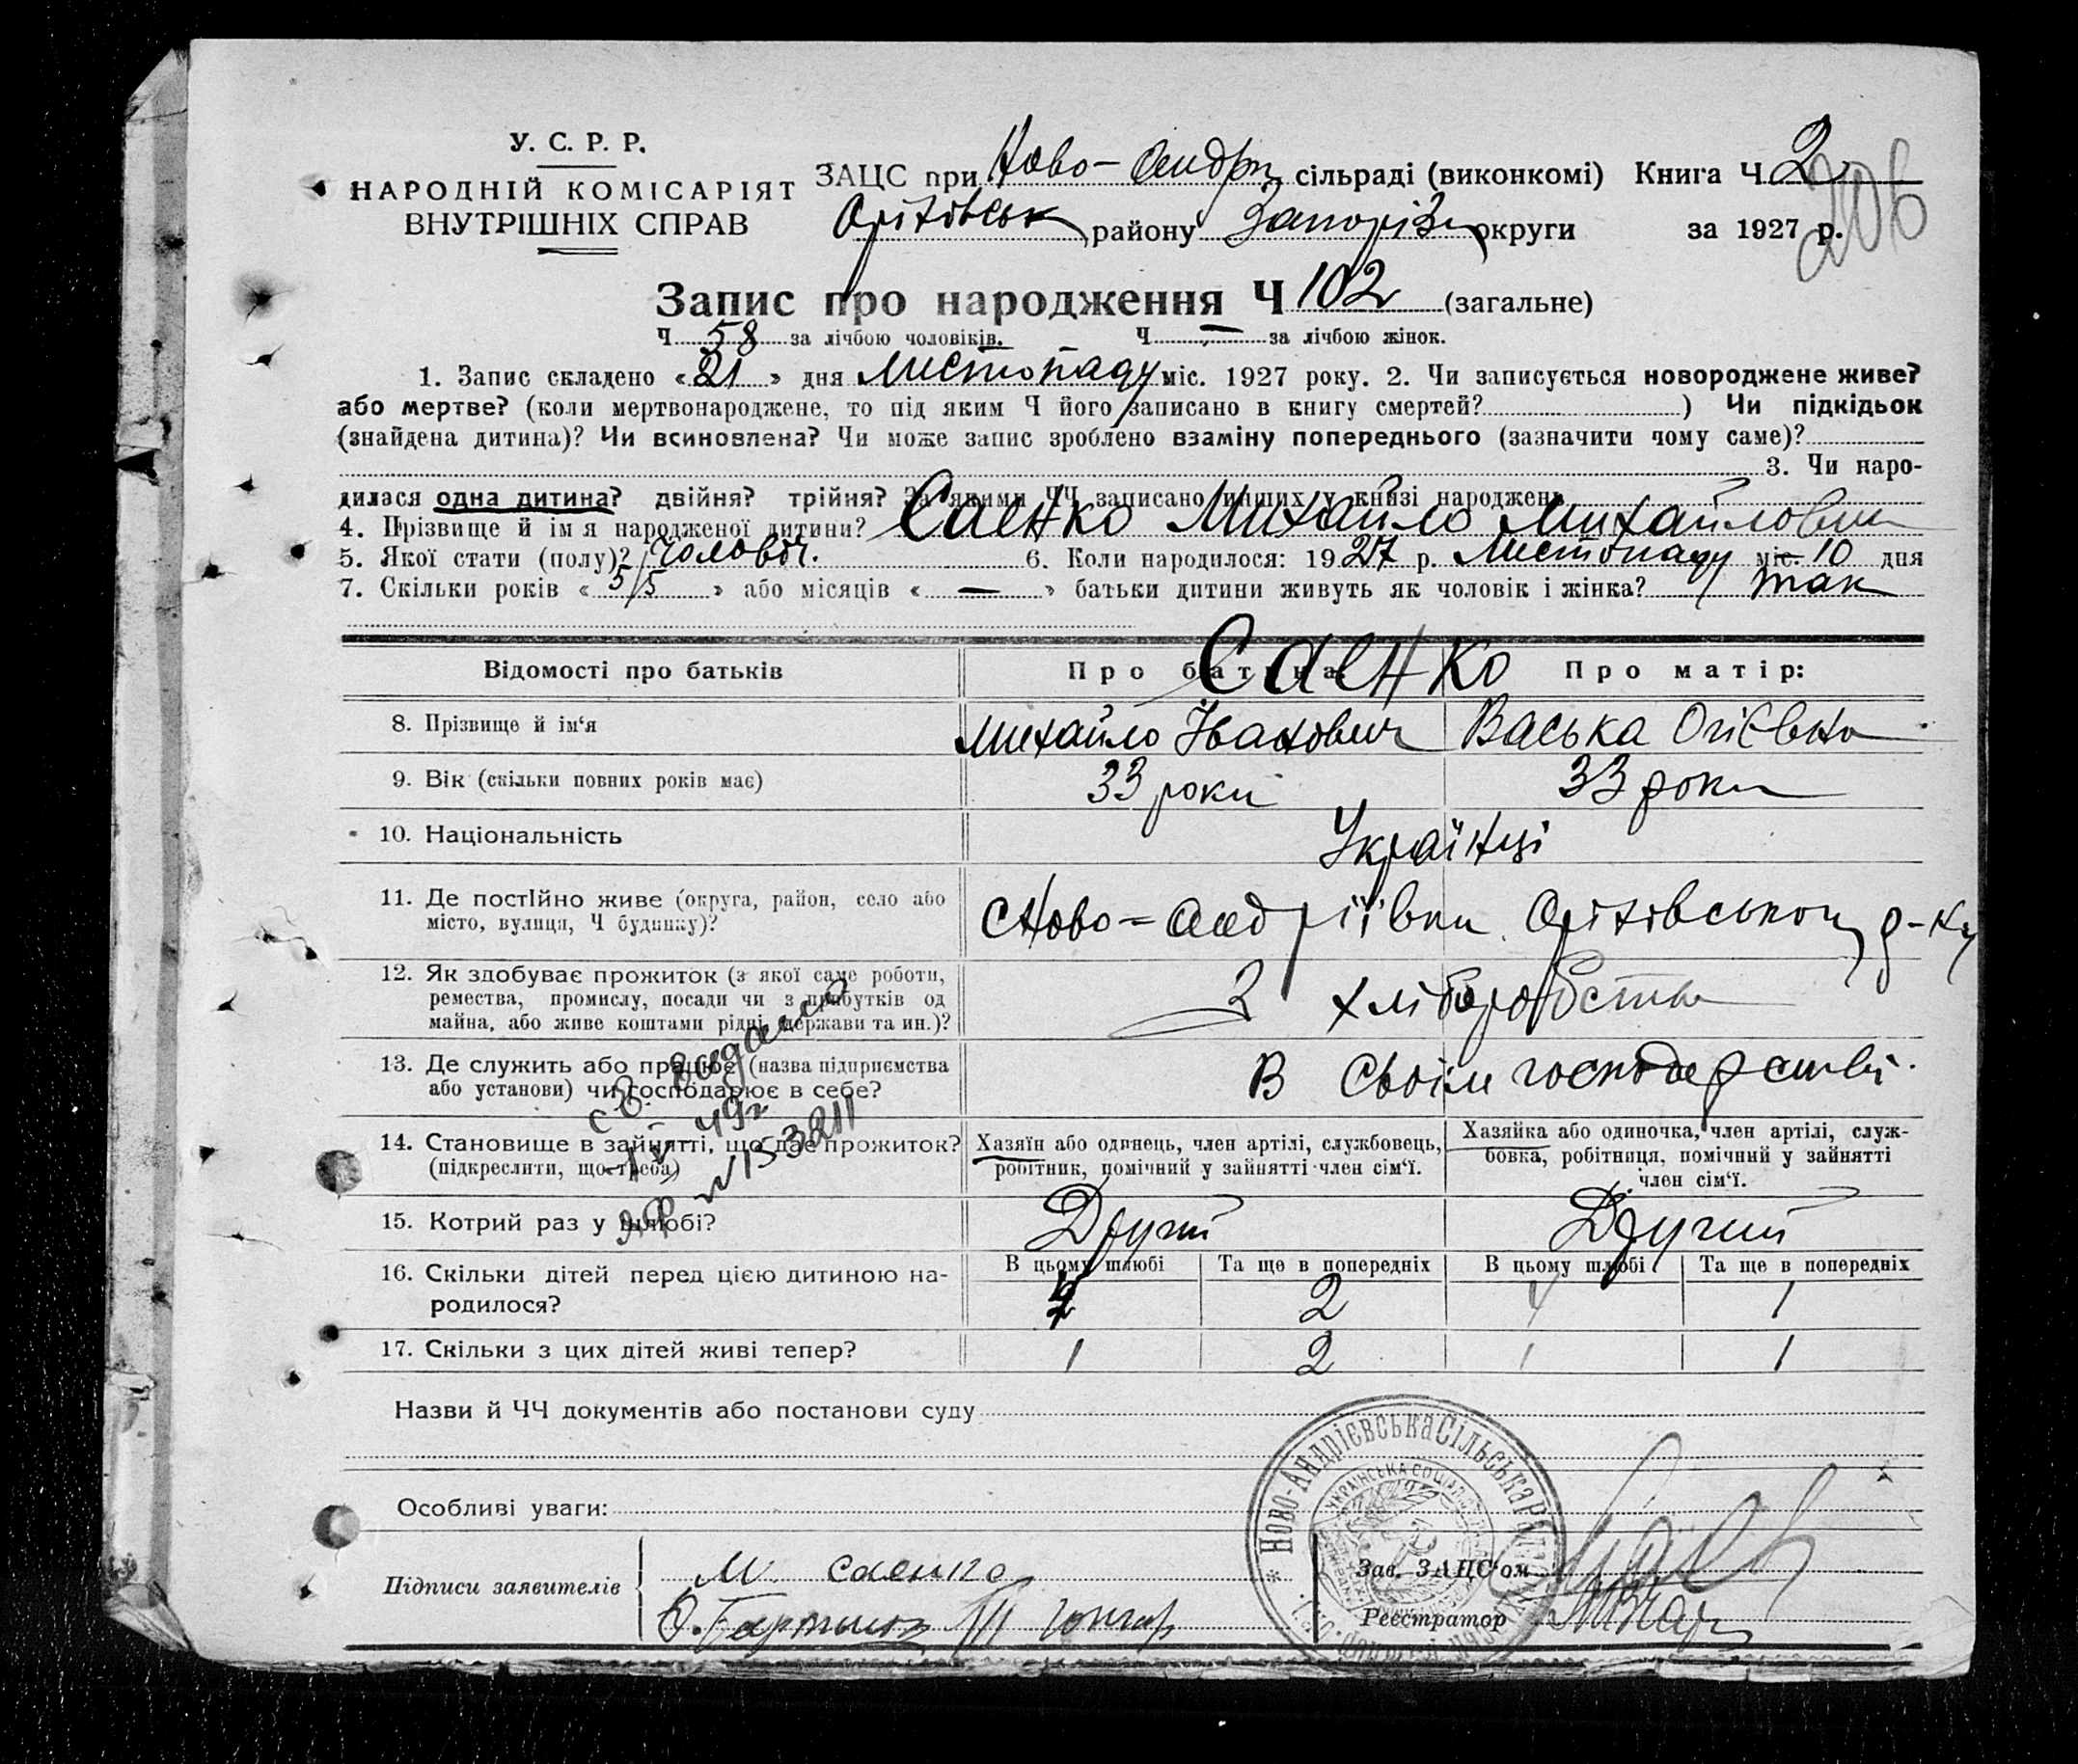 У. С. Р. Р.
НАРОДНІЙ КОМІСАРІЯТ
ВНУТРІШНІХ СПРАВ
ЗАЦС при Ново-Андр. сільраді (виконкомі) Книга Ч. 2
206
Оріхівськ району Запоріз. округи за 1927 р.
Запис про народження Ч 102 (загальне)
Ч 58 за лічбою чоловіків. Ч — за лічбою жінок.
1. Запис складено «21» дня Листопаду міс. 1927 року. 2. Чи записується новороджене живе?
або мертве? (коли мертвонароджене, то під яким Ч його записано в книгу смертей? ) Чи підкідьок
(знайдена дитина)? Чи всиновлена? Чи може запис зроблено взаміну попереднього (зазначити чому саме)?
3. Чи наро-
дилася одна дитина? двійня? трійня? За якими ЧЧ записано инших у книзі народжень
4. Прізвище й ім'я народженої дитини? Саенко Михайло Михайлович
5. Якої стати (полу)? Чоловіч. 6. Коли народилося: 1927 р. Листопаду міс. 10 дня
7. Скільки років « 5/5 » або місяців « — » батьки дитини живуть як чоловік і жінка? так
Відомості про батьків Про батька Про матір:
Саенко
8. Прізвище й ім'я Михайло Іванович Васька
9. Вік (скільки повних років має) 33 роки 33 роки
10. Національність Українці
11. Де постійно живе (округа, район, село або
місто, вулиця, Ч будинку)? Ново-Андріївки Оріхівського р-ну
12. Як здобуває прожиток (з якої саме роботи,
ремества, промислу, посади чи з прибутків од
майна, або живе коштами рідні, держави та ин.)? З хліборобства
13. Де служить або працює (назва підприємства
або установи) чи господарює в себе? В своім господарстві.
14. Становище в зайнятті, що дає прожиток?
(підкреслити, що треба)
Хазяїн або одинець, член артілі, службовець,
робітник, помічний у зайнятті член сім'ї.
Хазяйка або одиночка, член артілі, служ-
бовка, робітниця, помічний у зайнятті
член сім'ї.
15. Котрий раз у шлюбі? Другий Другий
В цьому шлюбі Та ще в попередніх В цьому шлюбі Та ще в попередніх
16. Скільки дітей перед цією дитиною на-
родилося? 2 1
17. Скільки з цих дітей живі тепер? 1 2 1 1
Назви й ЧЧ документів або постанови суду
Особливі уваги:
Підписи заявителів
М. Саенко
Зав. ЗАЦС'ом
Реєстратор
НОВО-АНДРІЄВСЬКА СІЛЬСЬКА РАДА